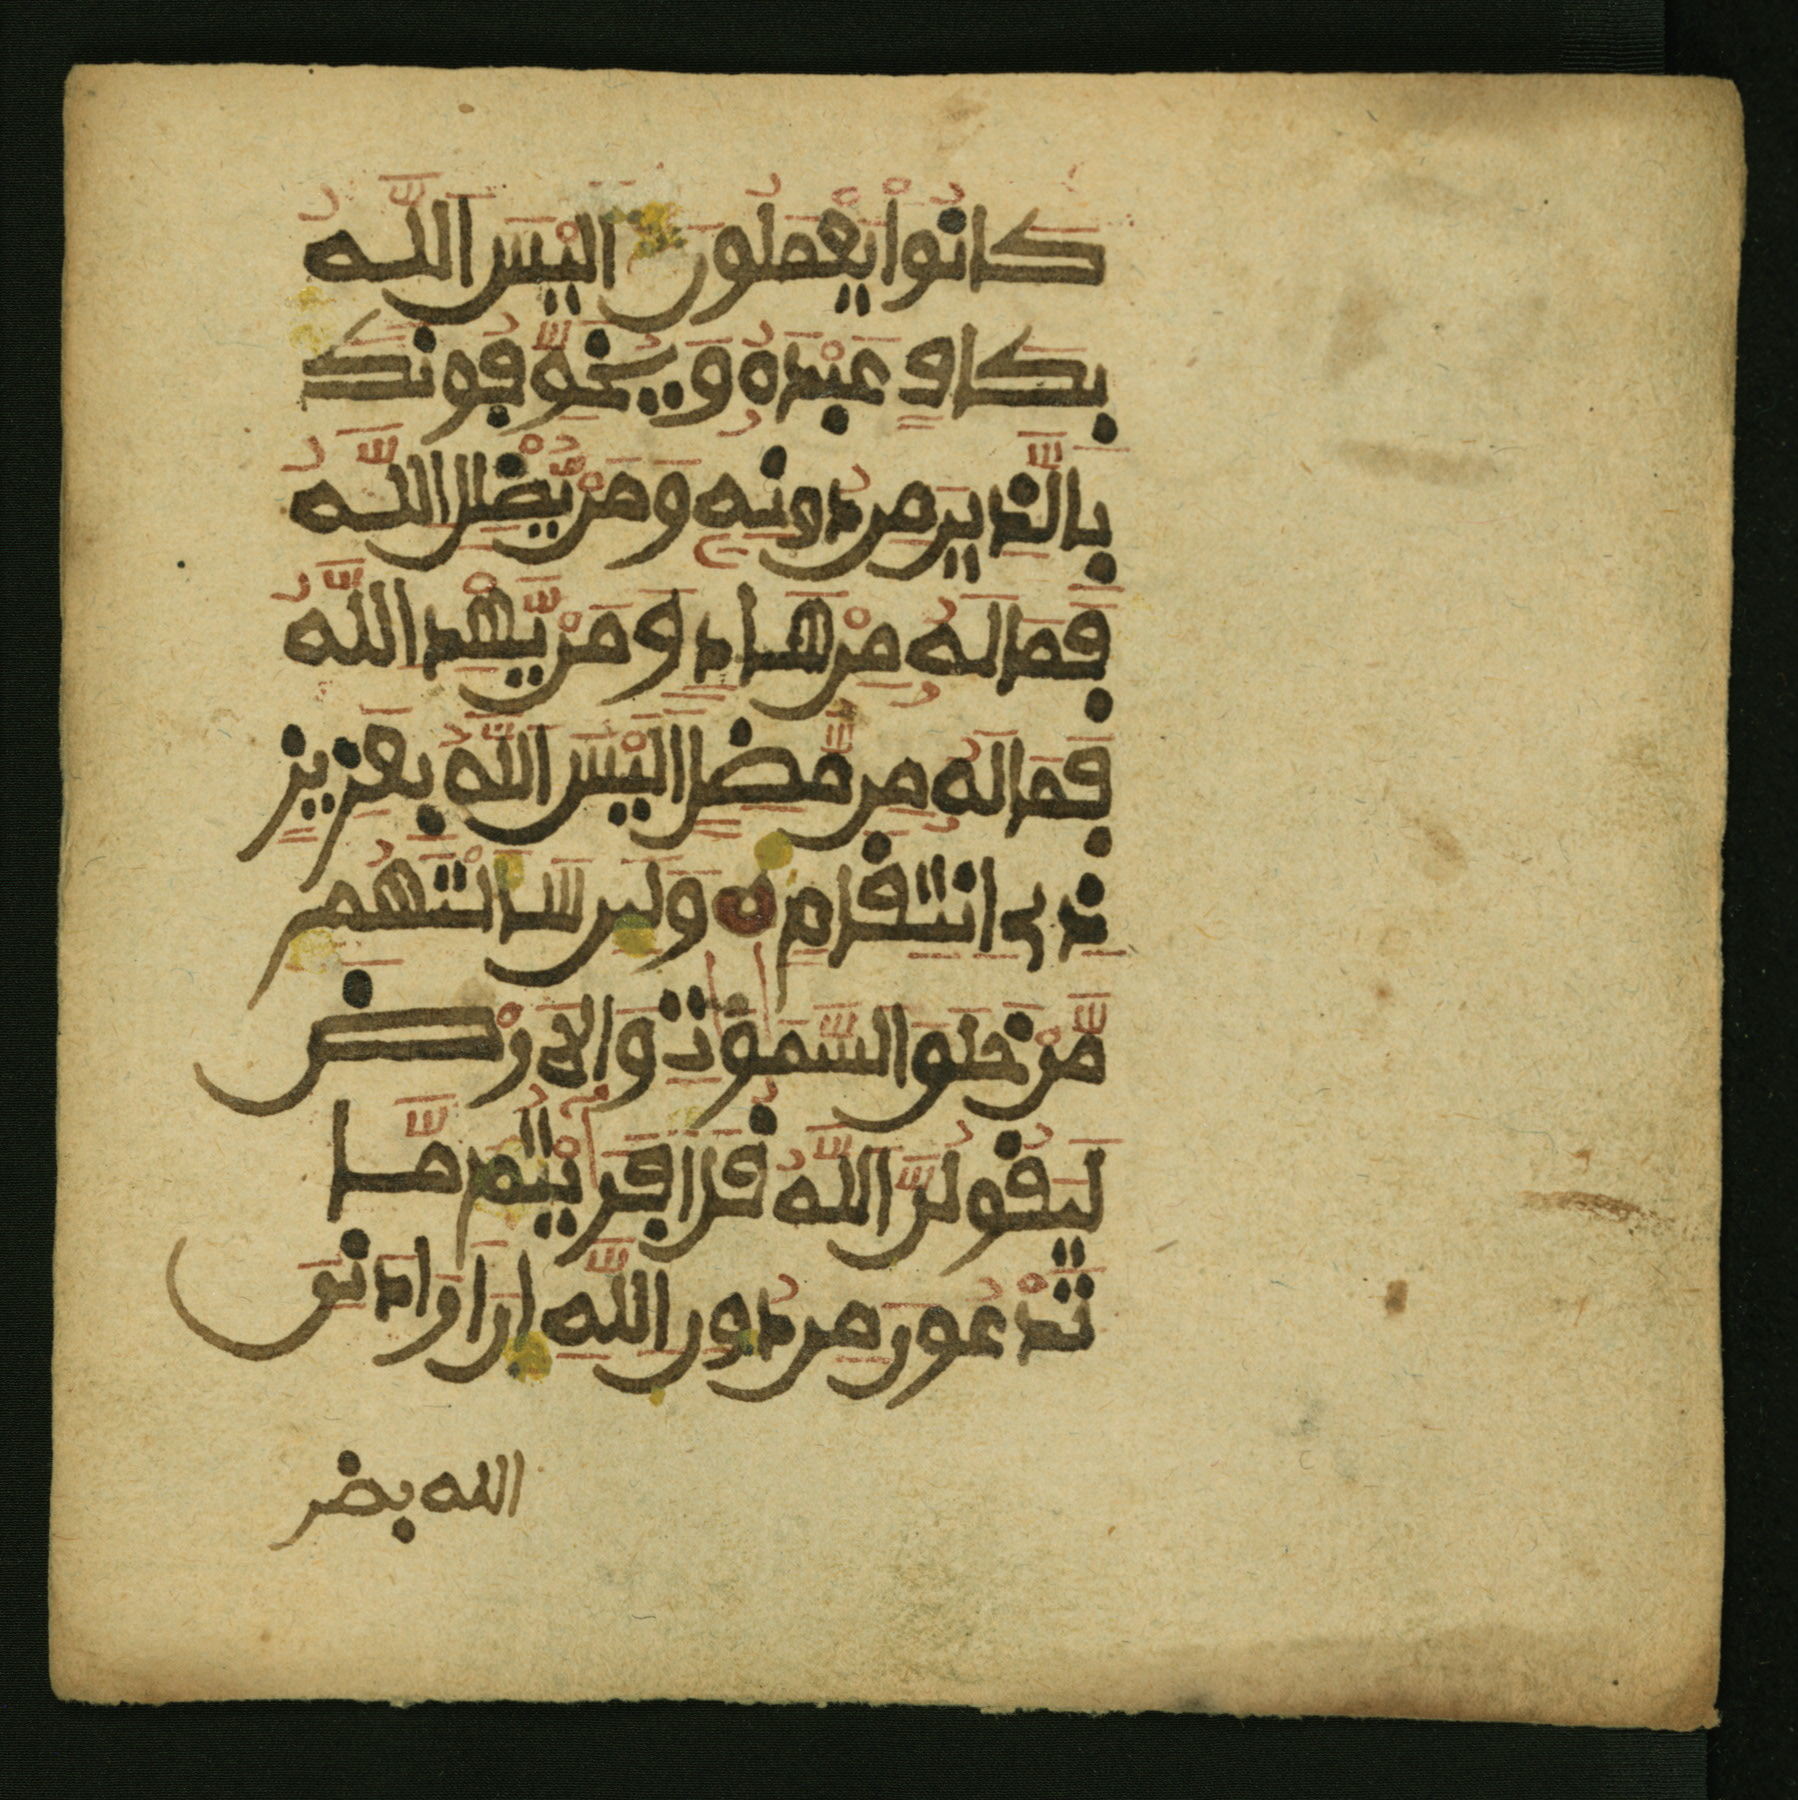 كَانُوا يَعْمَلُونَ اَلَيْسَ اَللَّهُ
بِكَافٍ عَبْدَهُ وَيُخَوِّفُونَكَ
بِالَّذِينَ مِن دُونِهِ وَمَنْ يُّضْلِلِ اِللَّهُ
فَمَا لَهُ مِنْ هَادٍ وَمَنْ يَّهْدِ اِللَّهُ
فَمَا لَهُ مِن مُّضِلٍّ اَلَيْسَ اَللَّهُ بِعَزِيزٍ
ذِى اِنتِقَامٍ وَلَئِن سَأَلْتَهُم
مَّنْ خَلَقَ اَلسَّمَوَتِ وَالَارْضَ
لَيَقُولُنَّ اَللَّهُ قُلَ اَفَرَيْتُم مَّا
تَدْعُونَ مِن دُونِ اِللَّهِ إِنَ اَرَادَنِىَ
الله بضر